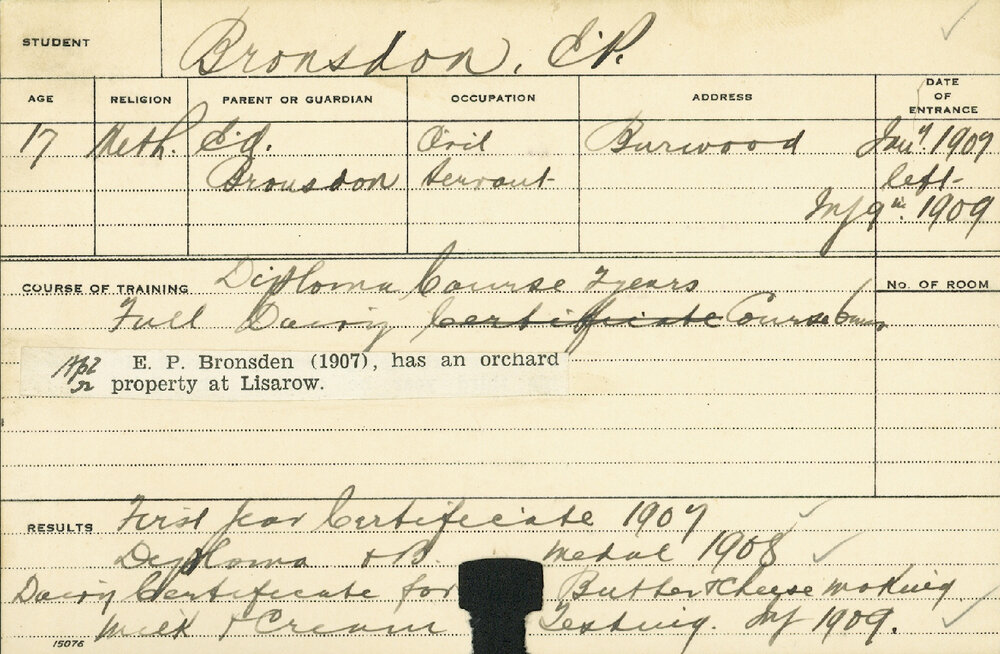 STUDENT Bronsdon, E.P.
AGE RELIGION PARENT OR GUARDIAN OCCUPATION ADDRESS DATE OF ENTRANCE
17 Meth. Civil Burwood Jany 1907
Bronsdon Servant left
9th. 1909
COURSE OF TRAINING Diploma Course 2 years No. OF ROOM
Full Dairy Certificate Course
E. P. Bronsden (1907), has an orchard
property at Lisarow.
RESULTS First Year Certificate 1907
Diploma & B. Medal 1908
Dairy Certificate for Butter & Cheese making
Milk & Cream Testing. 1909.
15076